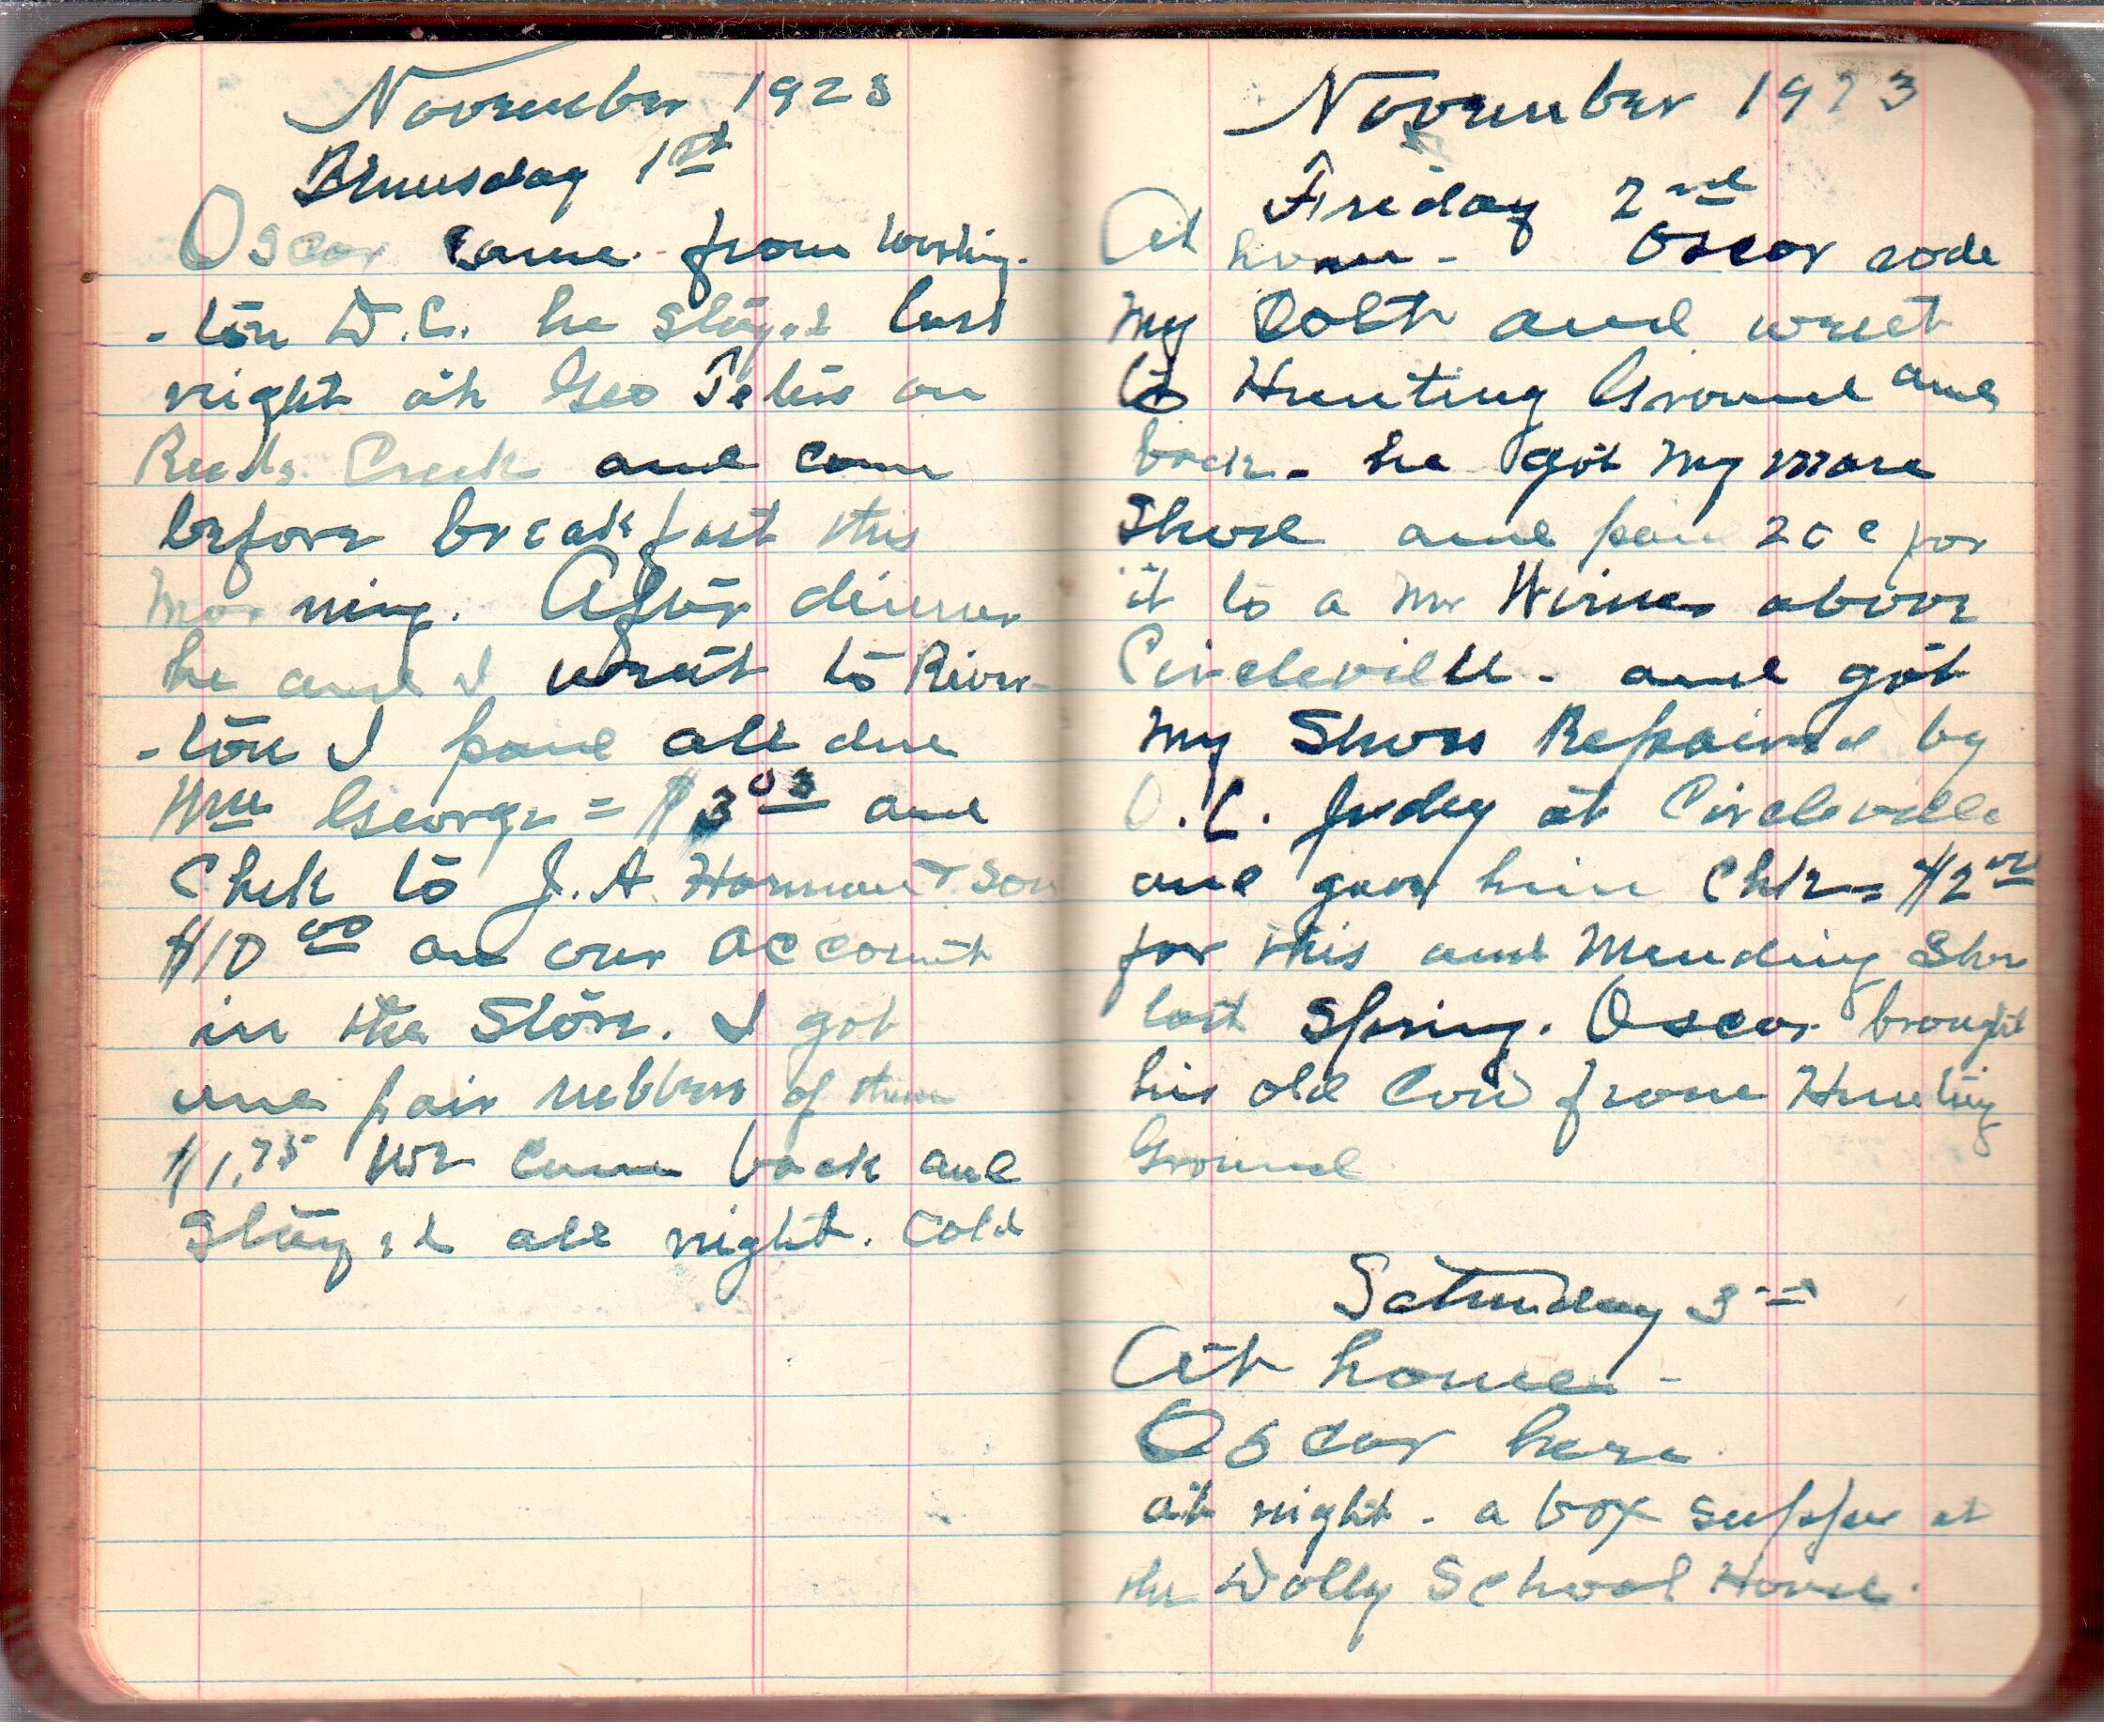 November 1923
Thursday 1st
Oscar came from Washing-
-ton D.C. he stayed last
night at Geo Teters on
Reeds Creek and come
before breakfast this
morning. After dinner
he and I went to River-
-ton I paid all due
Wm George = $3 03 and
Chek to J. A. Harman & Son
$10 00 on our account
in the Store. I got
one pair rubbers of them
$1.75 We came back and
stayed all night. Cold
November 1923
Friday 2nd
At home - Oscar rode
my Colt and went
to Hunting Ground and
back - he got my mare
Shod and paid 20c for
it to a Mr Wimer above
Circleville - and got
my Shoes Repaired by
O. C. Judy at Circleville
and gave him Chk = $2 00
for this and Mending Shoe
last Spring. Oscar brought
his old Cow from Hunting
Ground
Saturday 3rd
At home -
Oscar here
at night - a box supper at
the Dolly School House.